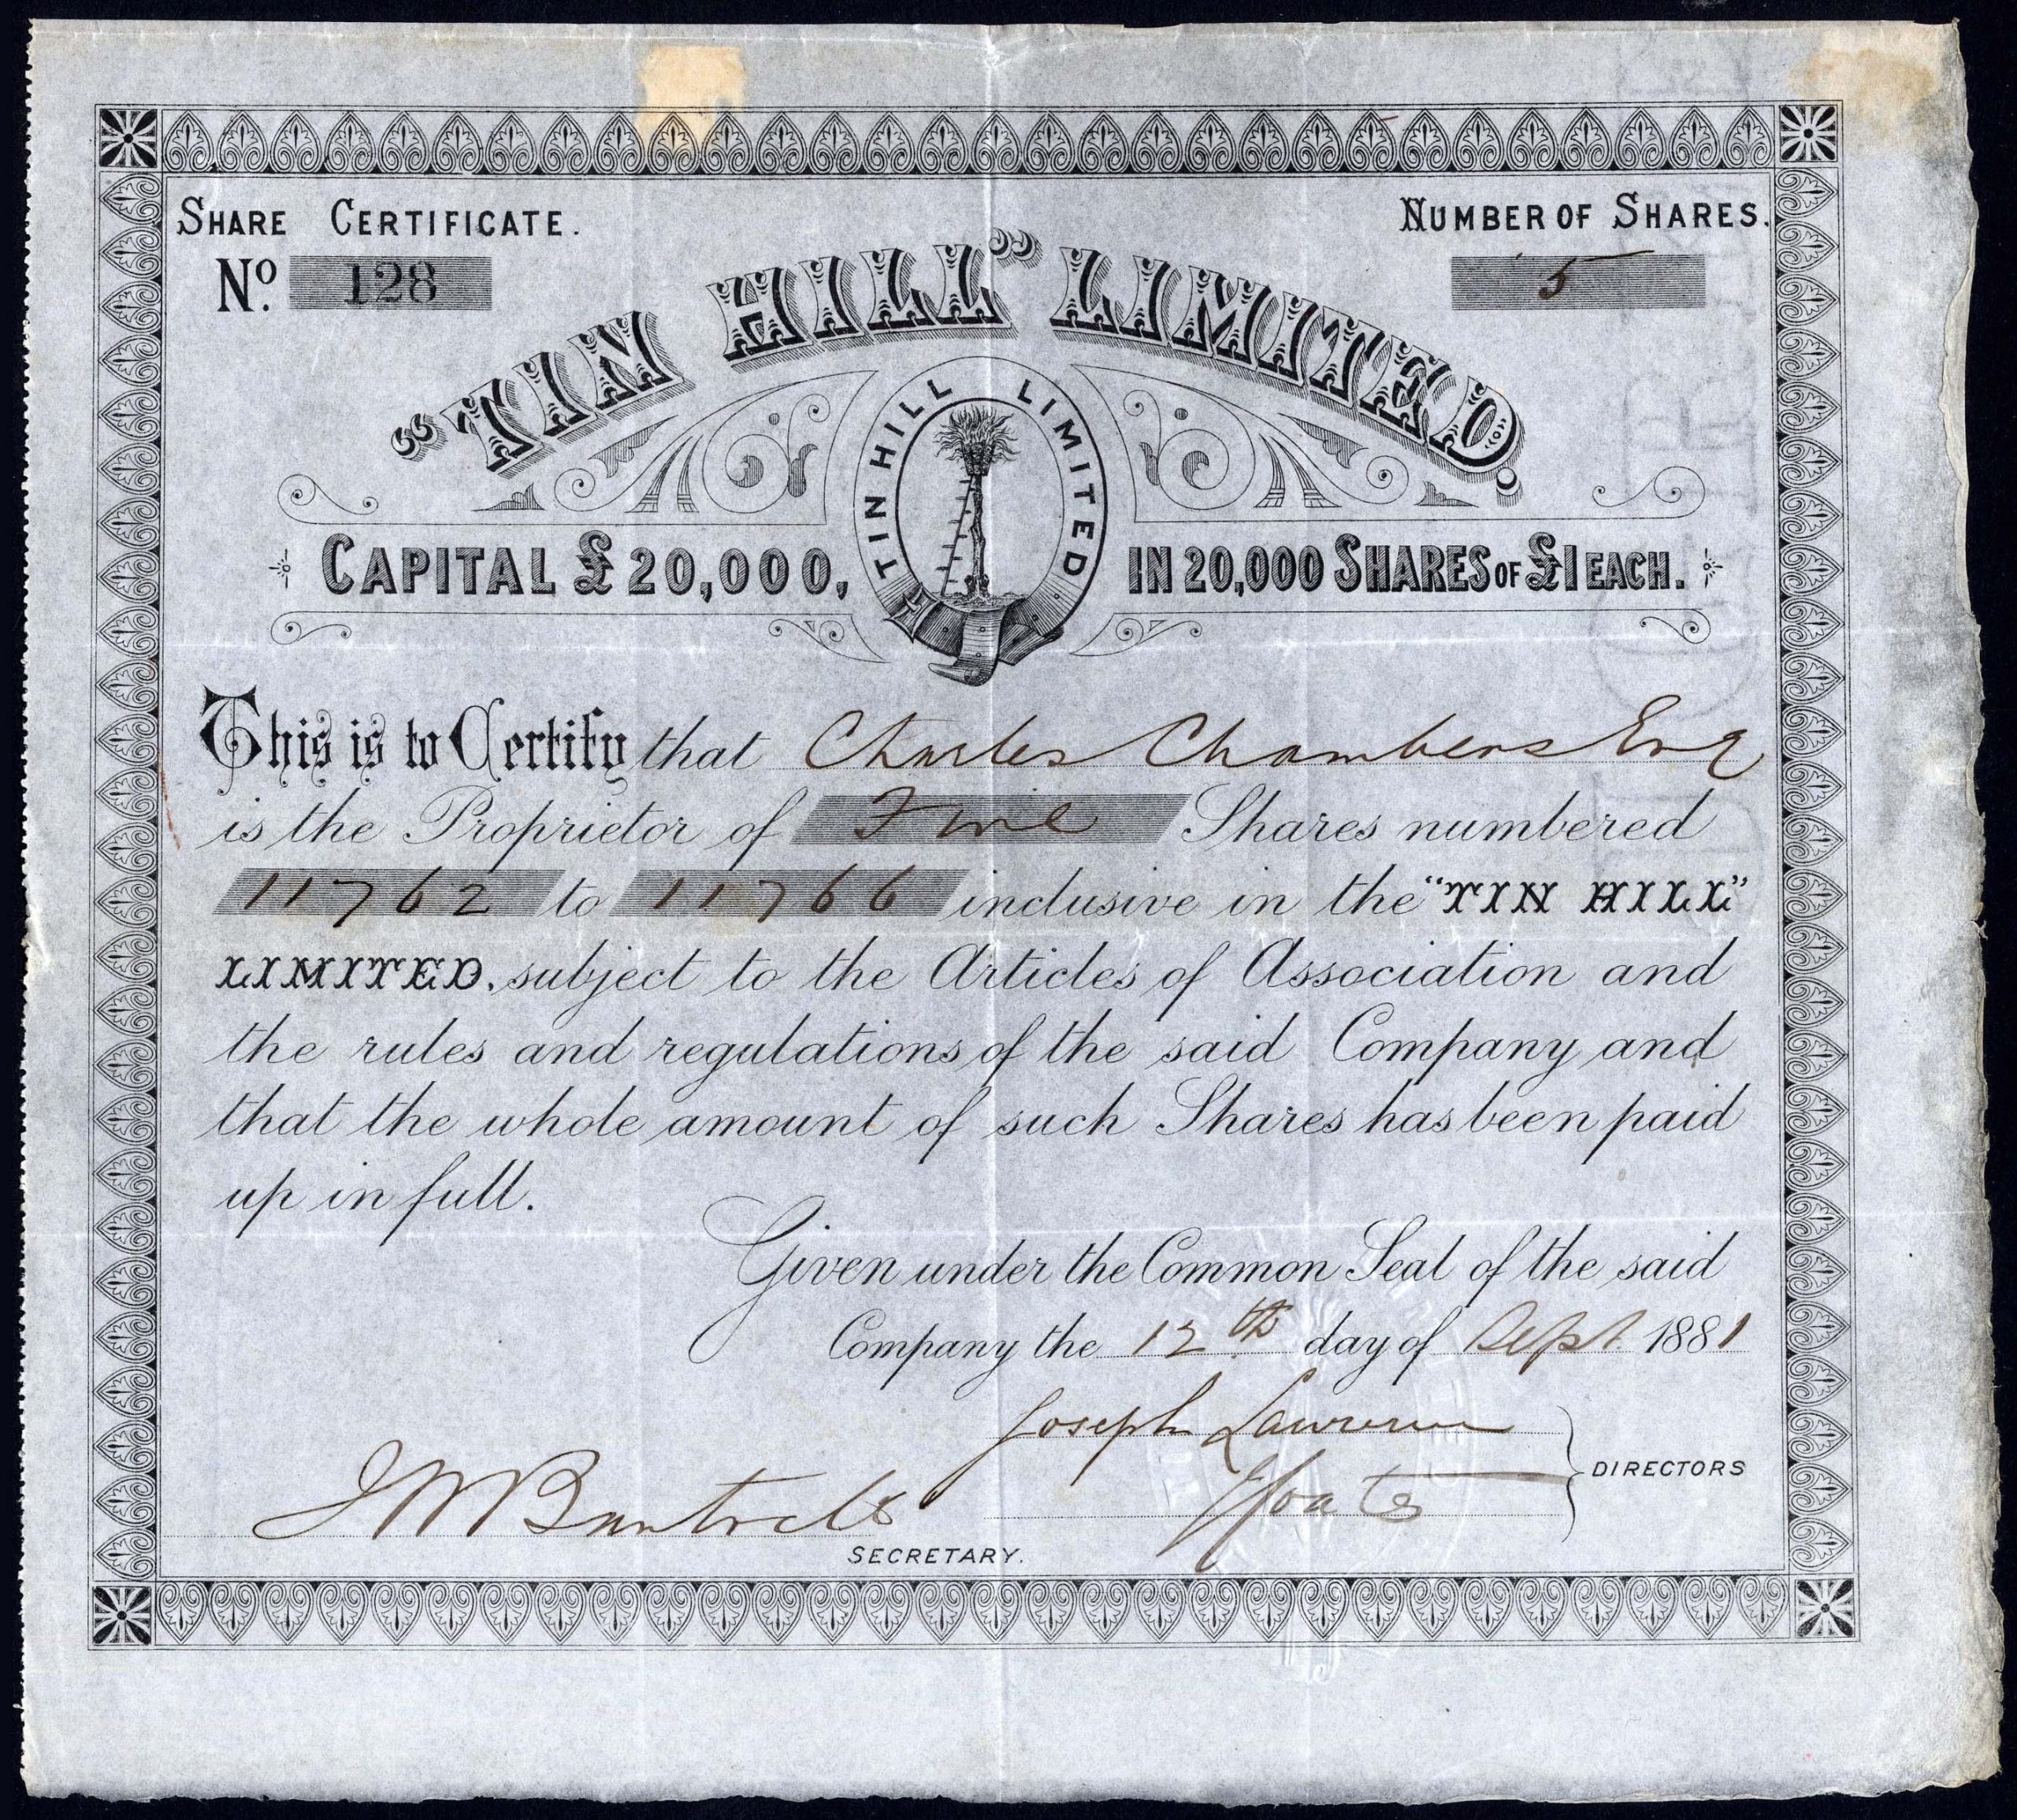 SHARE CERTIFICATE.
Nº. 128
NUMBER OF SHARES.
5
"TIN HILL" LIMITED.
TIN HILL LIMITED
CAPITAL £20,000, IN 20,000 SHARES OF £1 EACH.
This is to Certify that Charles Chambers Esq
is the Proprietor of Five Shares numbered
11762 to 11766 inclusive in the "TIN HILL"
LIMITED, subject to the Articles of Association and
the rules and regulations of the said Company and
that the whole amount of such Shares has been paid
up in full.
Given under the Common Seal of the said
Company the 12th day of Sept. 1881
Joseph Lawrence
DIRECTORS
SECRETARY.